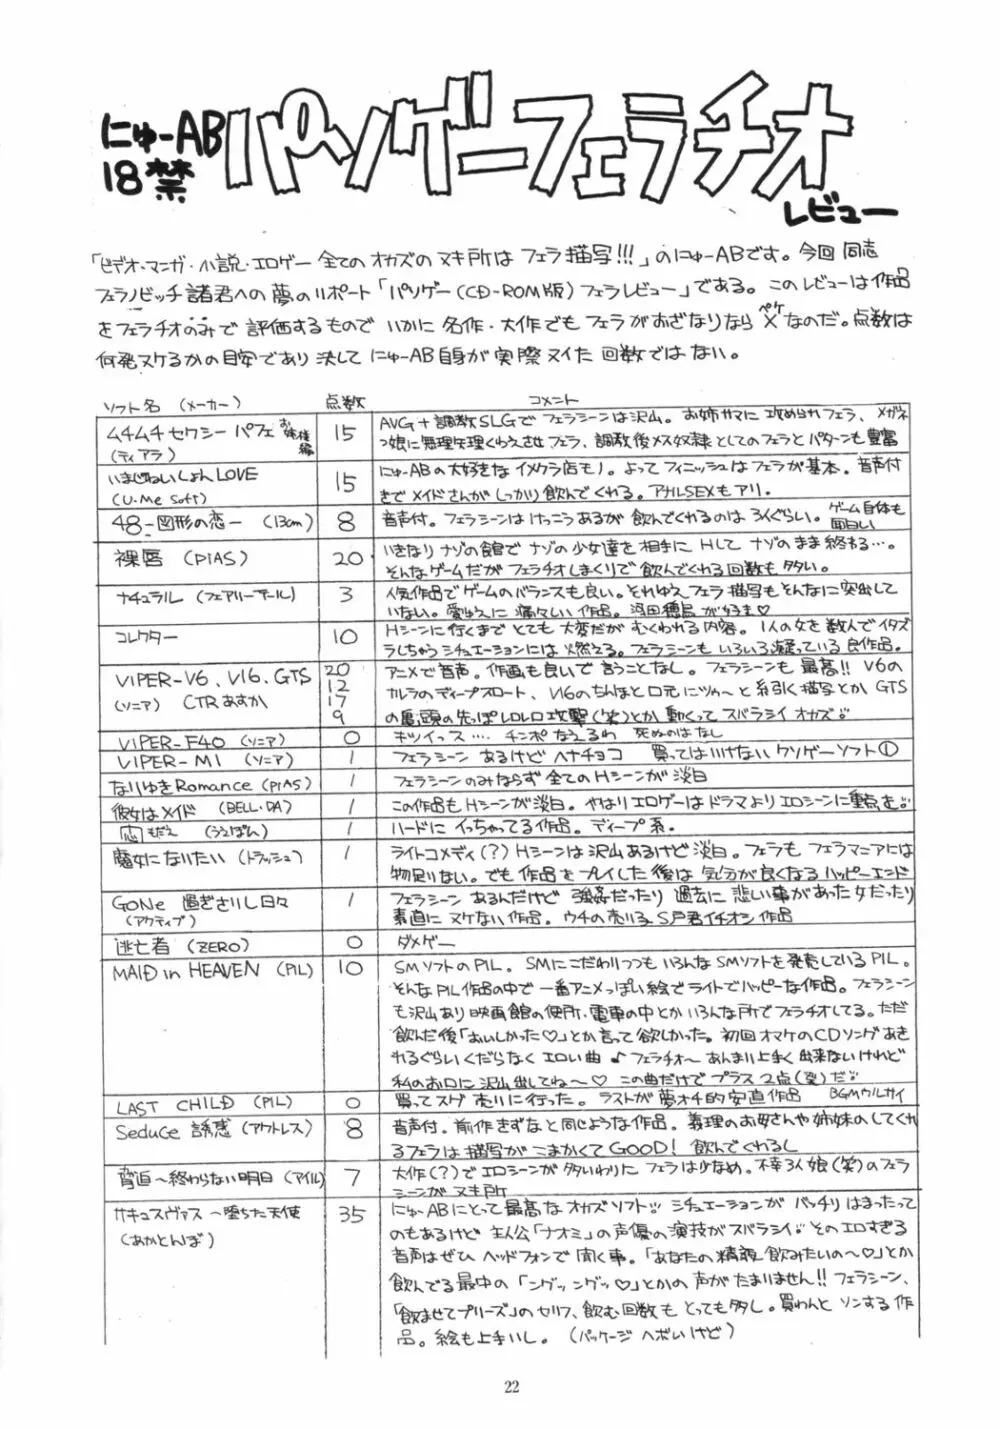 にゅーAB
18禁
パソゲーフェラチオ
レビュー
「ビデオ・マンガ・小説・エロゲー全てのオカズのヌキ所はフェラ描写!!!」のにゅーABです。今回同志
フェラノビッチ諸君への夢のリポート「パソゲー(CD-ROM版)フェラレビュー」である。このレビューは作品
をフェラチオのみで評価するものでいかに名作・大作でもフェラがおざなりなら×なのだ。点数は
ペケ
何発ヌケるかの目安であり決してにゅーAB自身が実際ヌイた回数ではない。
ソフト名(メーカー) 点数 コメント
ムチムチセクシーパフェ お姉様編
(ティアラ)
15
AVG+調教SLGでフェラシーンは沢山。お姉サマに攻められフェラ、メガネ
っ娘に無理矢理くわえさせフェラ、調教後メス奴隷としてのフェラとパターンも豊富
いまじねいしょんLOVE
(U・Me Soft)
15
にゅーABの大好きなイメクラ店もノ。よってフィニッシュはフェラが基本。音声付
きでメイドさんがしっかり飲んでくれる。アナルSEXもアリ.
48-図形の恋-(13cm)
8
音声付。フェラシーンはけっこうあるが飲んでくれるのは3人ぐらい。ゲーム自体も
面白い
裸唇(PIAS)
20
いきなりナゾの館でナゾの少女達を相手にHしてナゾのまま終わる…。
そんなゲームだがフェラチオしまくりで飲んでくれる回数も多い。
ナチュラル(フェアリーテール)
3
人気作品でゲームのバランスも良い。それゆえフェラ描写もそんなに突出して
いない。愛ゆえに痛々しい作品。
コレクター
10
Hシーンに行くまでとても大変だがむくわれる内容。1人の女を数人でイタズ
ラしちゃうシチュエーションには燃える。フェラシーンもいろいろ凝っている良作品。
VIPER-V6、V16、GTS
(ソニア) CTRあすか
20
12
17
9
アニメで音声。作画も良いで言うことなし。フェラシーンも最高!! V6の
カルラのディープスロート、V16のちんぽと口元にツバ〜と糸引く描写とかGTS
の亀頭の先っぽレロレロ攻撃(笑)とか動くってスバラシイオカズ♪
VIPER-F40(ソニア)
0
キツイっス‥‥チンポなえるわ 死ぬのはなし
VIPER-M1(ソニア)
1
フェラシーンあるけどヘナチョコ 買ってはいけないクソゲーソフト①
なりゆきRomance(PIAS)
1
フェラシーンのみならず全てのHシーンが淡白
彼女はメイド(BELL・DA)
1
この作品もHシーンが淡白。やはりエロゲーはドラマよりエロシーンに重点を♪
恋もだえ(うえぽん)
1
ハードにイっちゃってる作品。ディープ系.
魔女になりたい(トラッシュ)
1
ライトコメディ(?)Hシーンは沢山あるけど淡白。フェラもフェラマニアには
物足りない。でも作品をプレイした後は気分が良くなるハッピーエンド
GONE 過ぎさりし日々
(アクティブ)
1
フェラシーンあるんだけど強姦だったり過去に悲しい事があった女だったり
素直にヌケない作品。ウチの売り子S戸君イチオシ作品
逃亡者(ZERO)
0
ダメゲー
MAID in HEAVEN(PIL)
10
SMソフトのPIL。SMにこだわりつつもいろんなSMソフトを発売しているPIL。
そんなPIL作品の中で一番アニメっぽい絵でライトでハッピーな作品。フェラシーン
も沢山あり映画館の便所・電車の中とかいろんな所でフェラチオしてる。ただ
飲んだ後「おいしかった♡」とか言って欲しかった。初回オマケのCDソングあき
れるぐらいくだらなくエロい曲♪フェラチオ〜あんまり上手く出来ないけれど
私のお口に沢山出してね〜♡この曲だけでプラス2点(愛)だ♪
LAST CHILD(PIL)
0
買ってスグ売りに行った。ラストが夢オチ的安直作品 BGMウルサイ
Seduce 誘惑(アウトレス)
8
音声付。前作きずなと同じような作品。義理のお母さんや姉妹のしてくれ
るフェラは描写がこまかくてGOOD!飲んでくれるし
脅迫〜終わらない明日(アイル)
7
大作(?)でエロシーンが多いわりにフェラは少なめ。不幸3人娘(笑)のフェラ
シーンがヌキ所
サキュスヴァス〜堕ちた天使
(あかとんぼ)
35
にゅーABにとって最高なオカズソフトッ シチュエーションがバッチリはまったって
のもあるけど主人公「ナオミ」の声優の演技がスバラシイ♪そのエロすぎる
音声はぜひヘッドフォンで聞く事。「あなたの精液飲みたいの〜♡」とか
飲んでる最中の「ングッングッ♡」とかの声がたまりません!!フェラシーン、
「飲ませてプリーズ」のセリフ、飲む回数もとっても多し。買わんとソンする作
品。絵も上手いし。(パッケージヘボいけど)
22